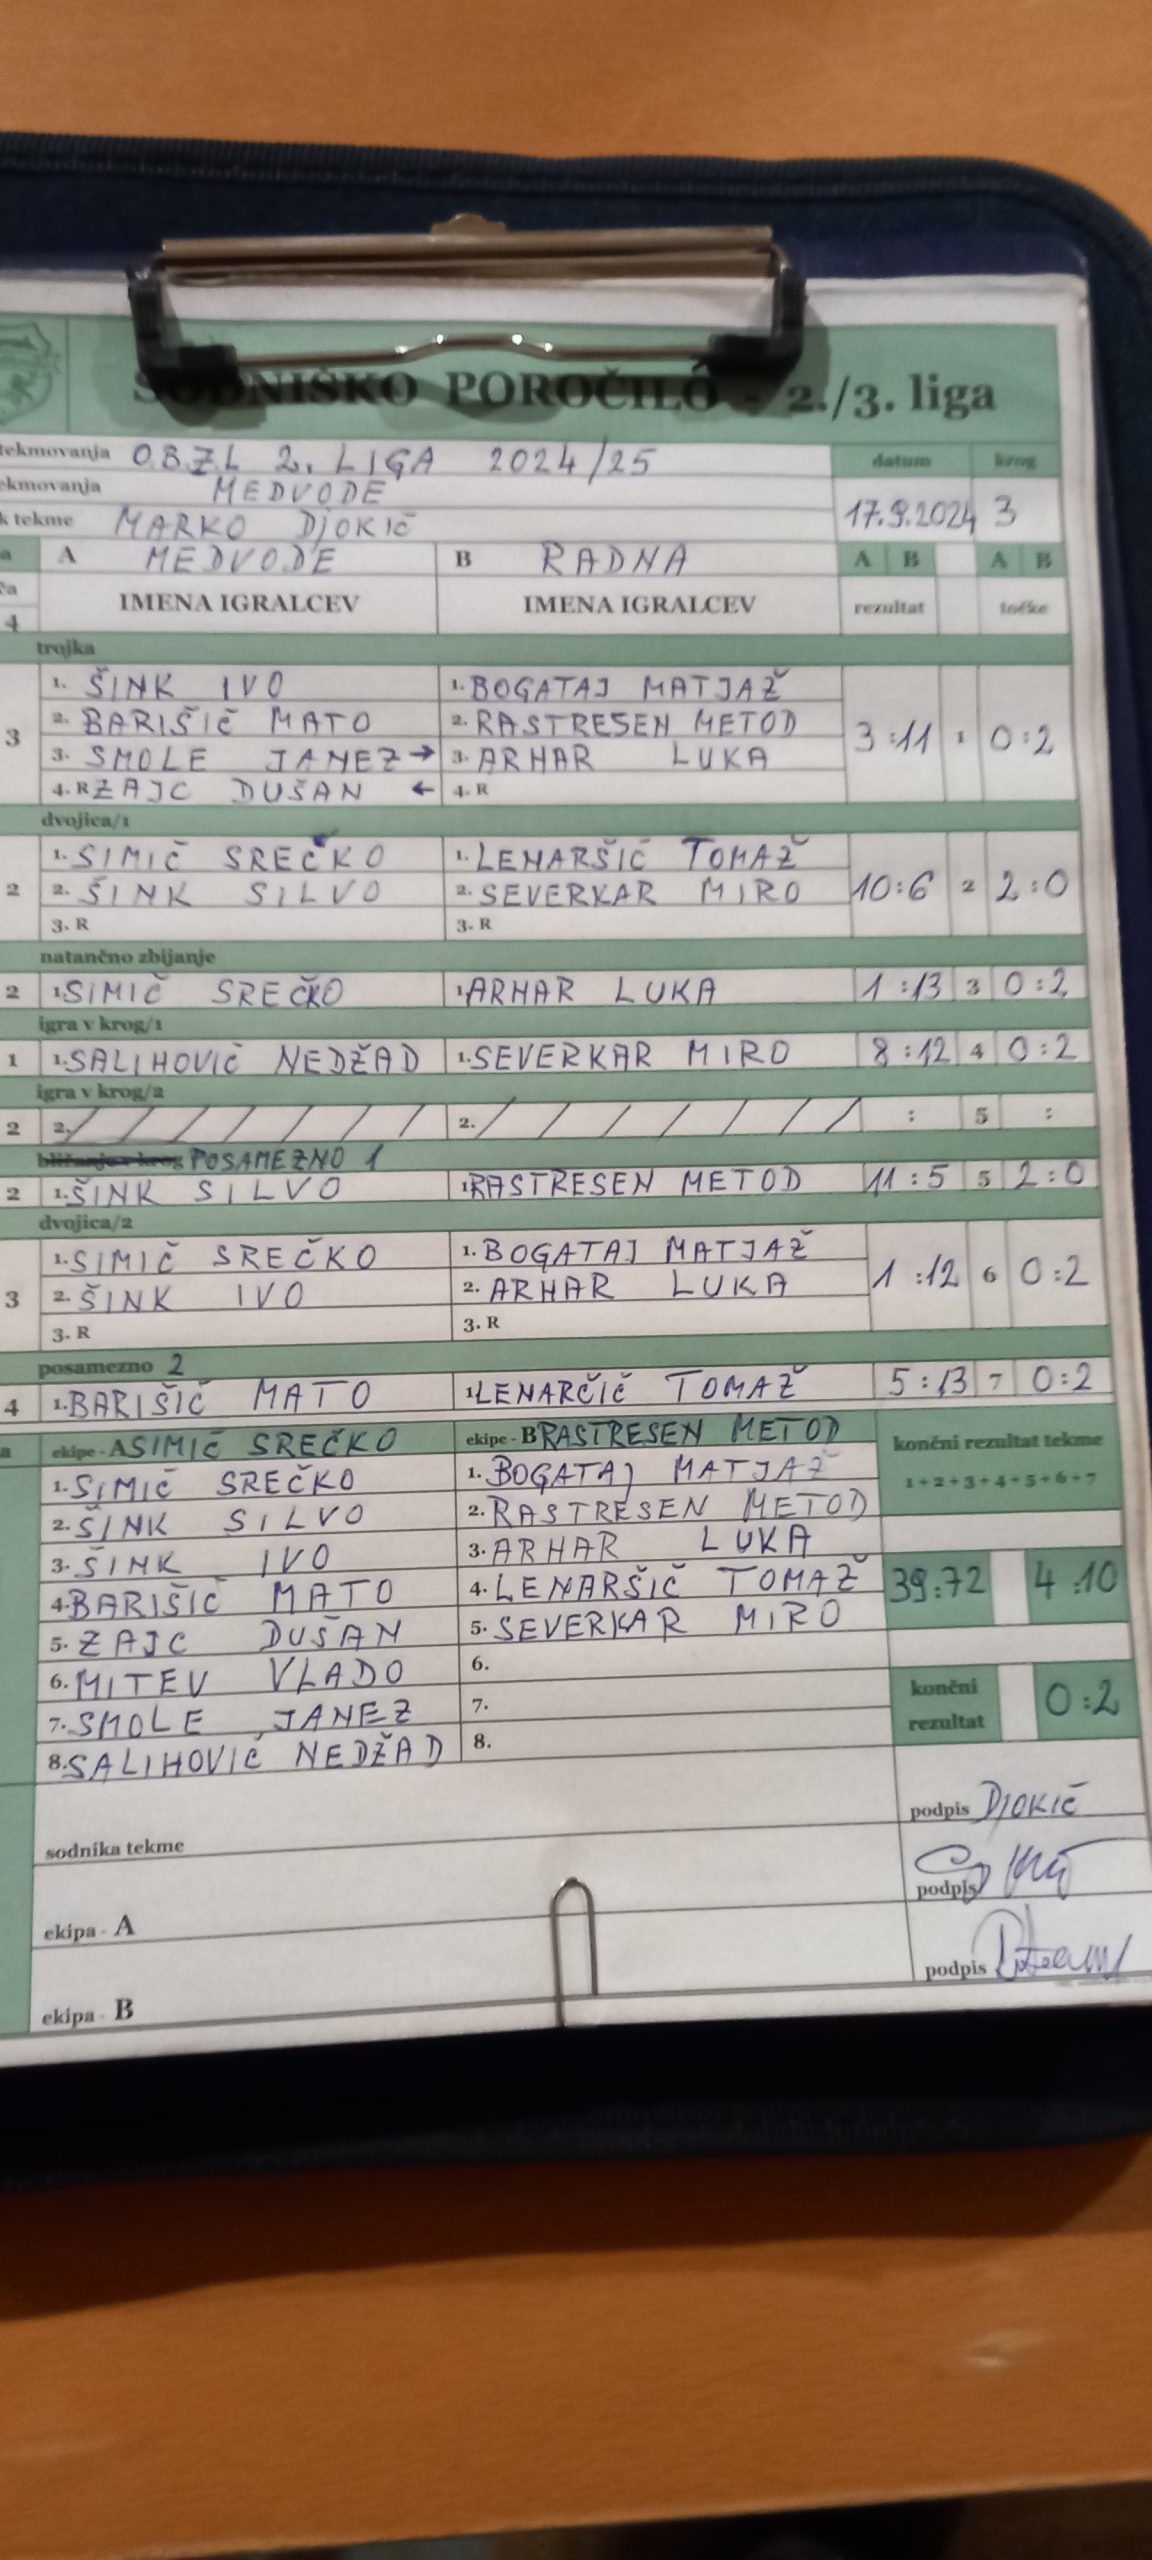 SODNIŠKO POROČILO - 2./3. liga
tekmovanja O.B.Z.L 2. LIGA 2024/25 datum krog
ekmovanja MEDVODE
k tekme MARKO DJOKIČ 17.9.2024 3
a A MEDVODE B RADNA A B A B
ča IMENA IGRALCEV IMENA IGRALCEV rezultat točke
4
trojka
3 3:11 1 0:2
1. ŠINK IVO 1. BOGATAJ MATJAŽ
2. BARIŠIČ MATO 2. RASTRESEN METOD
3. SMOLE JANEZ → 3. ARHAR LUKA
4. R ZAJC DUŠAN ← 4. R
dvojica/1
1. SIMIČ SREČKO 1. LENARŠIČ TOMAŽ
2 2. ŠINK SILVO 2. SEVERKAR MIRO 10:6 2 2:0
3. R 3. R
natančno zbijanje
2 1. SIMIČ SREČKO 1. ARHAR LUKA 1:13 3 0:2
igra v krog/1
1 1. SALIHOVIČ NEDŽAD 1. SEVERKAR MIRO 8:12 4 0:2
igra v krog/2
2 2. 2. : 5 :
bližanje v krog POSAMEZNO 1
2 1. ŠINK SILVO 1. RASTRESEN METOD 11:5 5 2:0
dvojica/2
1. SIMIČ SREČKO 1. BOGATAJ MATJAŽ
3 2. ŠINK IVO 2. ARHAR LUKA 1:12 6 0:2
3. R 3. R
posamezno 2
4 1. BARIŠIČ MATO 1. LENARČIČ TOMAŽ 5:13 7 0:2
a ekipe - A SIMIČ SREČKO ekipe - B RASTRESEN METOD končni rezultat tekme
1. SIMIČ SREČKO 1. BOGATAJ MATJAŽ 1+2+3+4+5+6+7
2. ŠINK SILVO 2. RASTRESEN METOD
3. ŠINK IVO 3. ARHAR LUKA
4. BARIŠIČ MATO 4. LENARŠIČ TOMAŽ 39:72 4:10
5. ZAJC DUŠAN 5. SEVERKAR MIRO
6. MITEV VLADO 6.
7. SMOLE JANEZ 7. končni rezultat 0:2
8. SALIHOVIČ NEDŽAD 8.
sodnika tekme podpis DJOKIČ
ekipa - A podpis
ekipa - B podpis